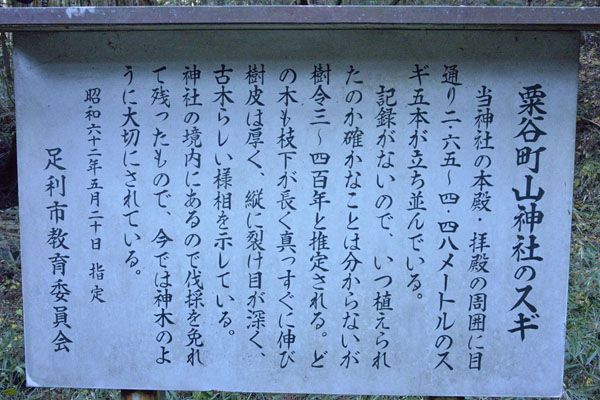 粟谷町山神社のスギ
当神社の本殿・拝殿の周囲に目
通り二・六五〜四・四八メートルのス
ギ五本が立ち並んでいる。
記録がないので、いつ植えられ
たのか確かなことは分からないが
樹令三〜四百年と推定される。ど
の木も枝下が長く真っすぐに伸び
樹皮は厚く、縦に裂け目が深く、
古木らしい様相を示している。
神社の境内にあるので伐採を免れ
て残ったもので、今では神木のよ
うに大切にされている。
昭和六十二年五月二十日 指定
足利市教育委員会